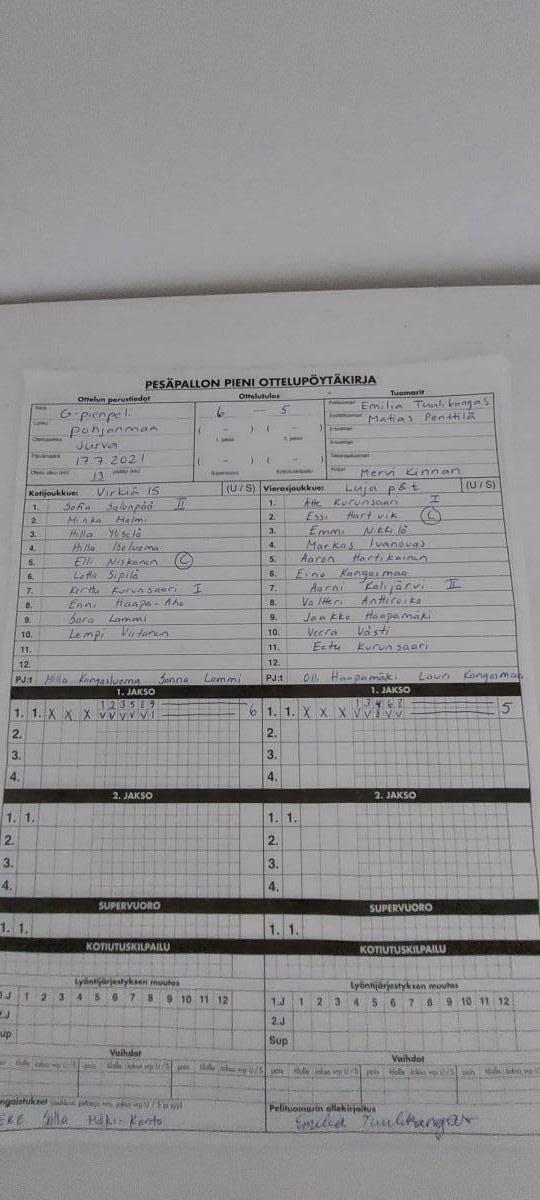 PESÄPALLON PIENI OTTELUPÖYTÄKIRJA
Ottelun perustiedot Ottelutulos Tuomarit
Sarja G-pienpeli
Lohko Pohjanmaa
Ottelupaikka Jurva
Päivämäärä 17.7.2021
Ottelu alkoi (klo) 13 päättyi (klo)
6 — 5
( – ) ( – )
1. jakso 2. jakso
( – ) ( – )
Supervuoro Kotiutuskilpailu
Pelituomari Emilia Tuulikangas
Syöttötuomari Matias Penttilä
2-tuomari
3-tuomari
Takarajatuomari
Kirjuri Mervi Kinnari
Kotijoukkue: Virkiä 15 (U / S)
1. Sofia Salonpää II
2. Minka Holmi
3. Hilla Yliselä
4. Hilla Iseluoma
5. Elli Niskanen C
6. Lotta Sipilä
7. Kerttu Kurunsaari I
8. Enni Haapa-Aho
9. Sara Lammi
10. Lempi Viitanen
11.
12.
PJ:t Milla Kangasluoma Sanna Lammi
Vierasjoukkue: Luja p&t (U / S)
1. Atte Kurunsaari I
2. Essi Hartvik C
3. Emmi Nikkilä
4. Markas Ivanovas
5. Aaron Hartikainen
6. Eino Kangasmaa
7. Aarni Kalijärvi II
8. Valtteri Anttiroiko
9. Jaakko Haapamäki
10. Veera Västi
11. Eetu Kurunsaari
12.
PJ:t Olli Haapamäki Lauri Kangasmaa
1. JAKSO 1. JAKSO
1. 1. X X X 1 2 3 5 8 9 6
V V V V V
2.
3.
4.
1. 1. X X X 1 3 4 6 5
V V V V
2.
3.
4.
2. JAKSO 2. JAKSO
1. 1. 1. 1.
2. 2.
3. 3.
4. 4.
SUPERVUORO SUPERVUORO
1. 1. 1. 1.
KOTIUTUSKILPAILU KOTIUTUSKILPAILU
Lyöntijärjestyksen muutos Lyöntijärjestyksen muutos
1.J 1 2 3 4 5 6 7 8 9 10 11 12 1.J 1 2 3 4 5 6 7 8 9 10 11 12
2.J 2.J
Sup Sup
Vaihdot Vaihdot
pois tilalle jakso vrp U / S pois tilalle jakso vrp U / S pois tilalle jakso vrp U / S
pois tilalle jakso vrp U / S pois tilalle jakso vrp U / S pois tilalle jakso vrp U
ngaistukset
Silla Mäki-Kanto
Pelituomarin allekirjoitus
Emilia Tuulikangas